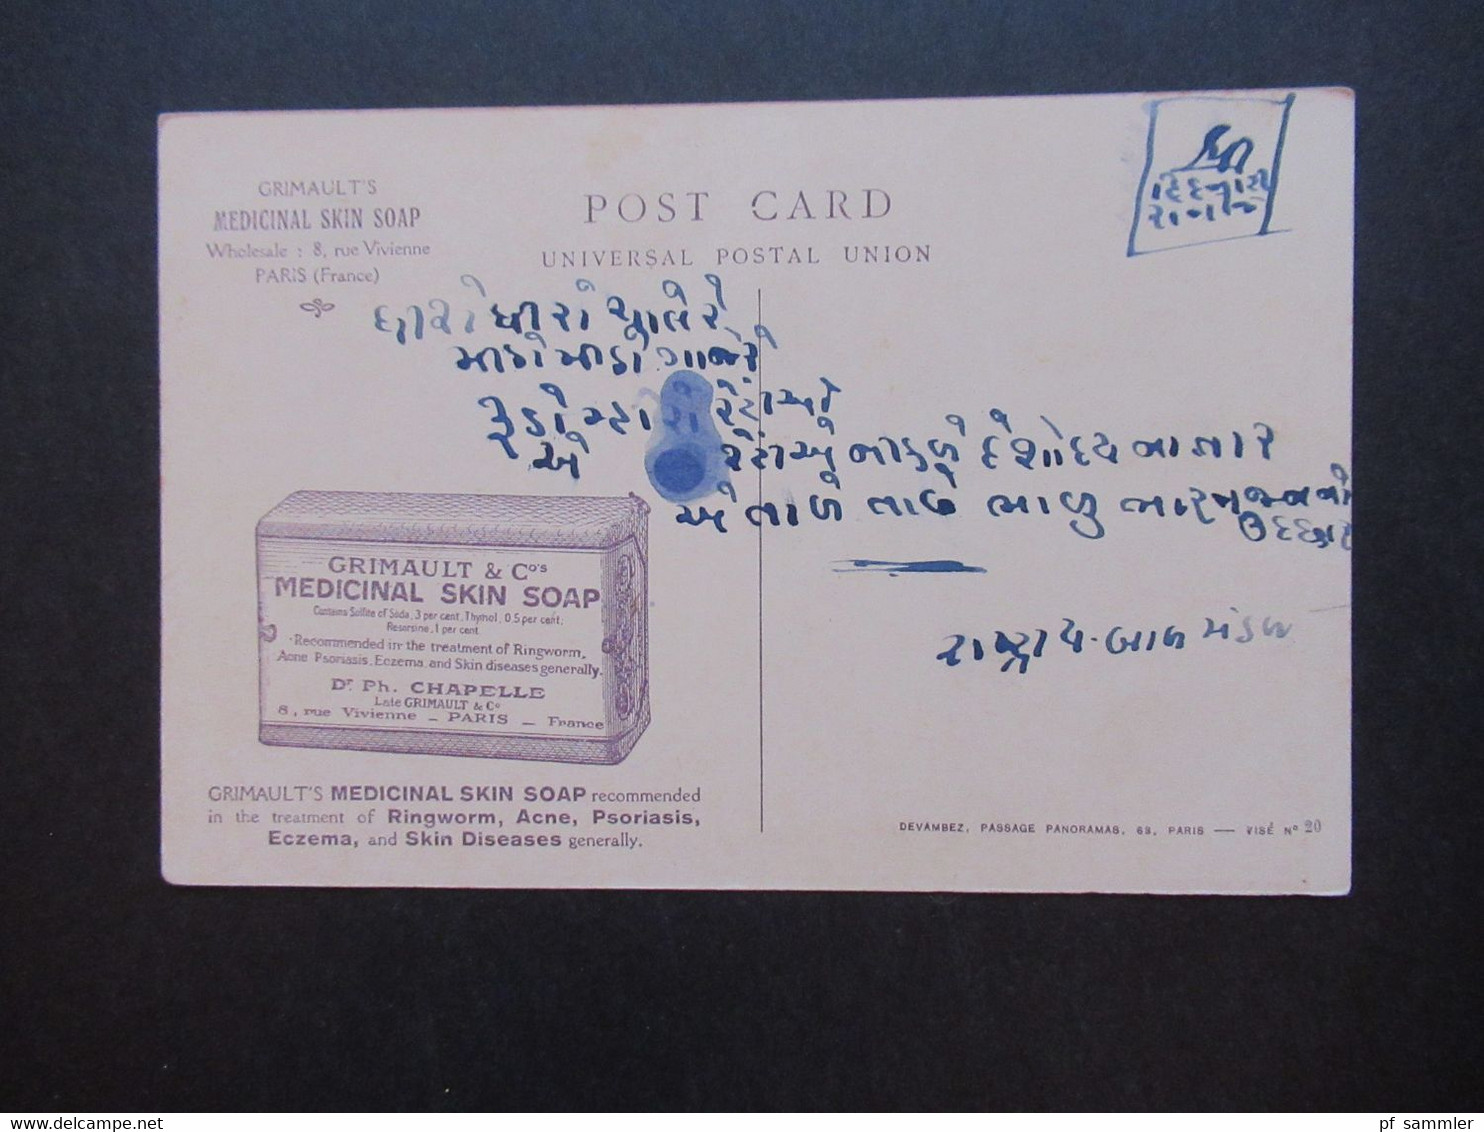 GRIMAULT'S
MEDICINAL SKIN SOAP
Wholesale : 8, rue Vivienne
PARIS (France)
POST CARD
UNIVERSAL POSTAL UNION
ધીરો ધીરો ચાલે રે
મીઠો મીઠો ગાજે
રૂડો મ્હારો રેંટીઓ
એ રેંટીએ
એ તાળે તાળે
રાષ્ટ્રીય-બાળ મંડળ
GRIMAULT & Cº'S
MEDICINAL SKIN SOAP
Contains Sulfite of Soda, 3 per cent, Thymol, 0.5 per cent,
Resorsine, 1 per cent
Recommended in the treatment of Ringworm,
Acne Psoriasis, Eczema, and Skin diseases generally.
Dr Ph. CHAPELLE
Late GRIMAULT & Cº
8, rue Vivienne – PARIS – France
GRIMAULT'S MEDICINAL SKIN SOAP recommended
in the treatment of Ringworm, Acne, Psoriasis,
Eczema, and Skin Diseases generally.
DEVAMBEZ, PASSAGE PANORAMAS, 63, PARIS — VISÉ Nº 20
pf sammler
delcampe.net